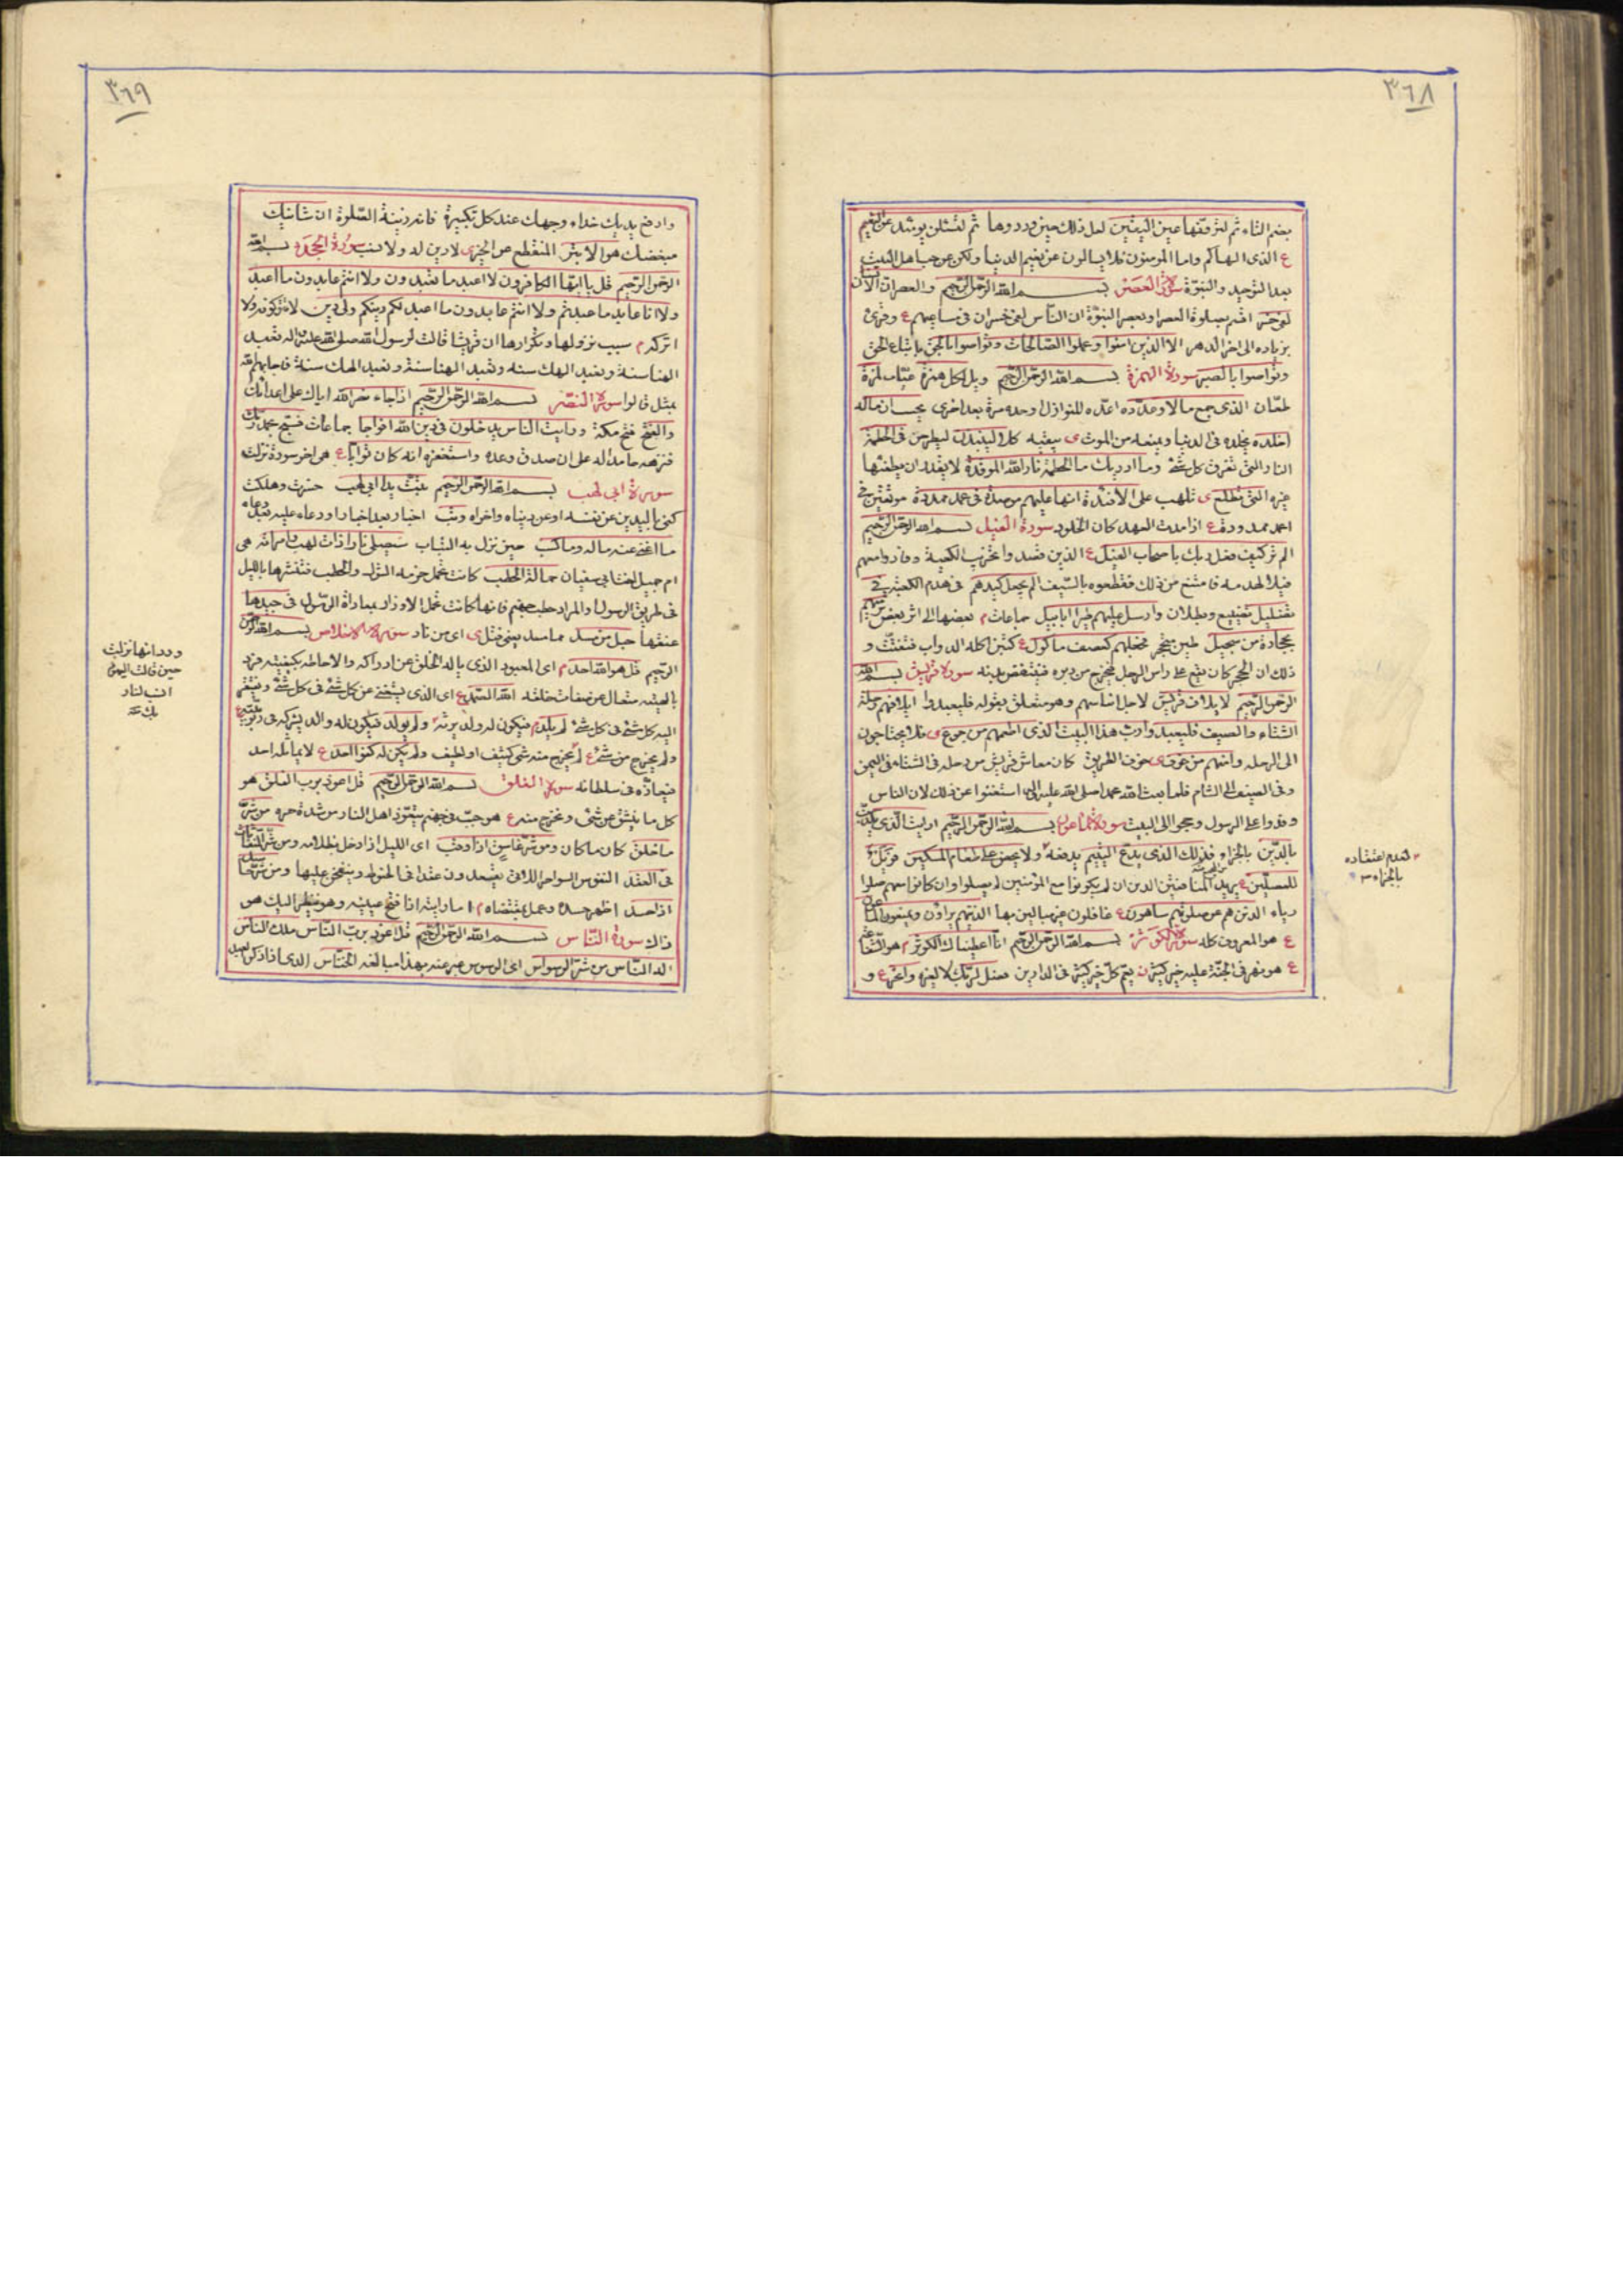 ٣٦٨
بضم التاء ثم لترونها عين اليقين لعل ذلك حين ورودها ثم لتسئلن يومئذ عن النعيم
ع الذى الهاكم واما المومنون فلا يسالون عن نعيم الدنيا ولكن عن حبنا اهل البيت
بعد التوحيد والنبوة سورة العصر بسم الله الرحمن الرحيم والعصر ان الانسان
لفى خسر اقسم بصلوة العصر او بعصر النبوة ان الناس لفى خسران فى مساعيهم ع وقرئ
بزياده الى اخر الدهر الا الذين امنوا وعملوا الصالحات وتواصوا بالحق باتباع الحق
وتواصوا بالصبر سورة الهمزة بسم الله الرحمن الرحيم ويل لكل همزة عياب لمزة
طعان الذى جمع مالا وعدده اعده للنوازل او عده مرة بعد اخرى يحسب ان ماله
اخلده يخلده فى الدنيا ويمنعه من الموت ى يبقيه كلا لينبذن ليطرحن فى الحطمة
النار التى تحرق كل شئ وما ادريك ما الحطمة نار الله الموقدة لا يقدر ان يطفئها
غيره التى تطلع ى تلهب على الافئدة انها عليهم موصدة فى عمد ممددة موثقين فى
اعمد ممدودة ع اذا مدت العمد كان الخلود سورة الفيل بسم الله الرحمن الرحيم
الم تر كيف فعل ربك باصحاب الفيل ع الذين قصدوا تخريب الكعبة وقادوا معهم
فيلا لهدمه فامتنع من ذلك فقطعوه بالسيف الم يجعل كيدهم فى هدم الكعبة فى
تضليل تضييع وبطلان وارسل عليهم طيرا ابابيل جماعات م بعضها الى اثر بعض ترميهم
بحجارة من سجيل طين متحجر فجعلهم كعصف ماكول ع كتبن اكله الدواب فتفتت و
ذلك ان الحجر كان تقع على راس الرجل فيخرج من دبره فينتقض بدنه سورة قريش بسم الله
الرحمن الرحيم لايلاف قريش لاجل ايناسهم وهو متعلق بقوله فليعبدوا ايلافهم رحلة
الشتاء والصيف فليعبدوا رب هذا البيت الذى اطعمهم من جوع ى فلا يحتاجون
الى الرحله وامنهم من خوف ى خوف الطريق كان معاش قريش من رحله فى الشتاء فى اليمن
وفى الصيف الى الشام فلما بعث الله محمد صلى الله عليه واله استغنوا عن ذلك لان الناس
وفدوا على الرسول وحجوا الى البيت سورة الماعون بسم الله الرحمن الرحيم ارايت الذى يكذب
بالدين بالجزاء فذلك الذى يدع اليتيم يدفعه ولا يحض على طعام المسكين فويل
للمصلين ع يريد المنافقين الذين ان لم يكونوا مع المؤمنين لم يصلوا وان كانوا معهم صلوا
رياء الذين هم عن صلوتهم ساهون ع غافلون غير مبالين بها الذين هم يراؤن ويمنعون الماعون
ع هو المعروف كله سورة الكوثر بسم الله الرحمن الرحيم انا اعطيناك الكوثر م هو الشفاعة
ع هو نهر فى الجنة عليه خير كثير ن يتم كل خير كثير فى الدارين فصل لربك لا لغيره وانحر ع و
لعدم اعتقاده
بالجزاء
٣٦٩
وارفع يديك حذاء وجهك عند كل تكبيرة فانه زينة الصلوة ان شانئك
مبغضك هو الابتر المنقطع عن الخير ى لا دين له ولا نسب سورة الجحد بسم الله
الرحمن الرحيم قل يا ايها الكافرون لا اعبد ما تعبدون ولا انتم عابدون ما اعبد
ولا انا عابد ما عبدتم ولا انتم عابدون ما اعبد لكم دينكم ولى دين لا تتركونه ولا
اتركه م سبب نزولها وتكرارها ان قريشا قالت لرسول الله صلى الله عليه واله تعبد
الهنا سنة ونعبد الهك سنه وتعبد الهنا سنة ونعبد الهك سنة فاجابهم الله
بمثل قالوا سورة النصر بسم الله الرحمن الرحيم اذا جاء نصر الله اياك على اعدائك
والفتح فتح مكة ورايت الناس يدخلون فى دين الله افواجا جماعات فسبح بحمد ربك
فنزهه حامدا له على ان صدق وعده واستغفره انه كان توابا ع هى اخر سورة نزلت
سورة ابى لهب بسم الله الرحمن الرحيم تبت يدا ابى لهب خسرت وهلكت
كنى باليدين عن نفسه او عن دنياه واخراه وتب اخبار بعد اخبار او دعاء عليه بعد دعاء
ما اغنى عنه ماله وما كسب حين نزل به التباب سيصلى نارا ذات لهب وامراته هى
ام جميل اخت ابى سفيان حمالة الحطب كانت تحمل حزمة الشوك والحطب فتنثرها بالليل
فى طريق الرسول والمراد حطب جهنم فانها كانت تحمل الاوزار بمعاداة الرسول فى جيدها
عنقها حبل من مسد مما مسد يعنى فتل ى اى من نار سورة الاخلاص بسم الله الرحمن
الرحيم قل هو الله احد م اى المعبود الذى ياله الخلق عن ادراكه والاحاطه بكيفيته فرد
بالهيته متعال عن صفات خلقه الله الصمد ع اى الذى يستغنى عن كل شئ فى كل شئ ويفتقر
اليه كل شئ فى كل شئ لم يلد م فيكون له ولد يرثه ولم يولد فيكون له والد يشركه فى ربوبيته ع
ولم يخرج من شئ ع لم يخرج منه شئ كثيف او لطيف ولم يكن له كفوا احد ع لا يماثله احد
فيعازه فى سلطانه سورة الفلق بسم الله الرحمن الرحيم قل اعوذ برب الفلق هو
كل ما ينشق عن شئ ويخرج منه ع هو جب فى جهنم يتعوذ اهل النار من شدة حره من شر
ما خلق كان ما كان ومن شر غاسق اذا وقب اى الليل اذا دخل بظلامه ومن شر النفاثات
فى العقد النفوس السواحر اللاتى يعقدون عقدا فى الخيوط وينفخن عليها ومن شر حاسد
اذا حسد اظهر حسده وعمل بمقتضاه م اما رايته اذا فتح عينيه وهو ينظر اليك هو
ذاك سورة الناس بسم الله الرحمن الرحيم قل اعوذ برب الناس ملك الناس
اله الناس من شر الوسواس اى الموسوس عبر عنه بهذا مبالغة الخناس الذى اذا ذكر العبد
وورد انها نزلت
حين قالت اليهود
انسب لنا
ربك